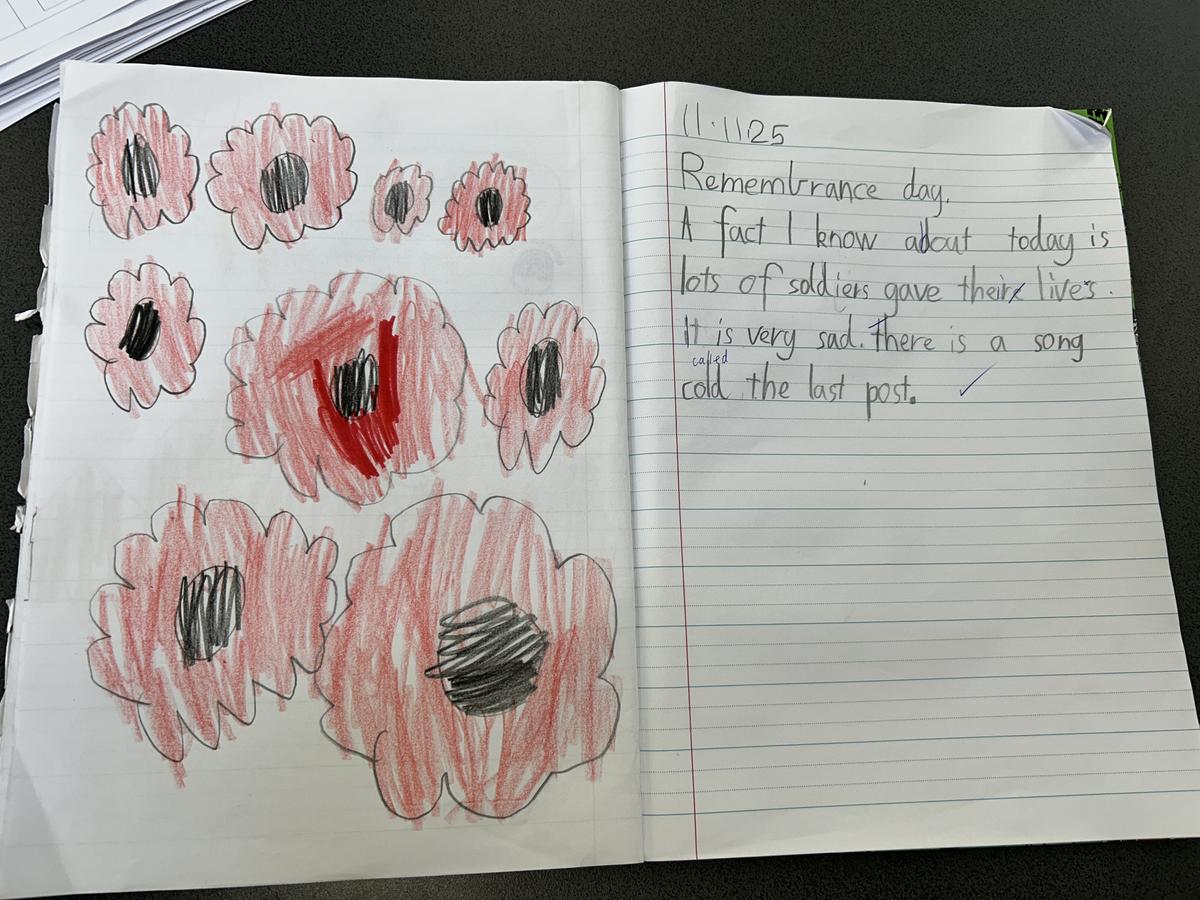 11.1125
Remembrance day.
A fact I know about today is
lots of soldiers gave their lives.
It is very sad. There is a song
called
cold the last post.